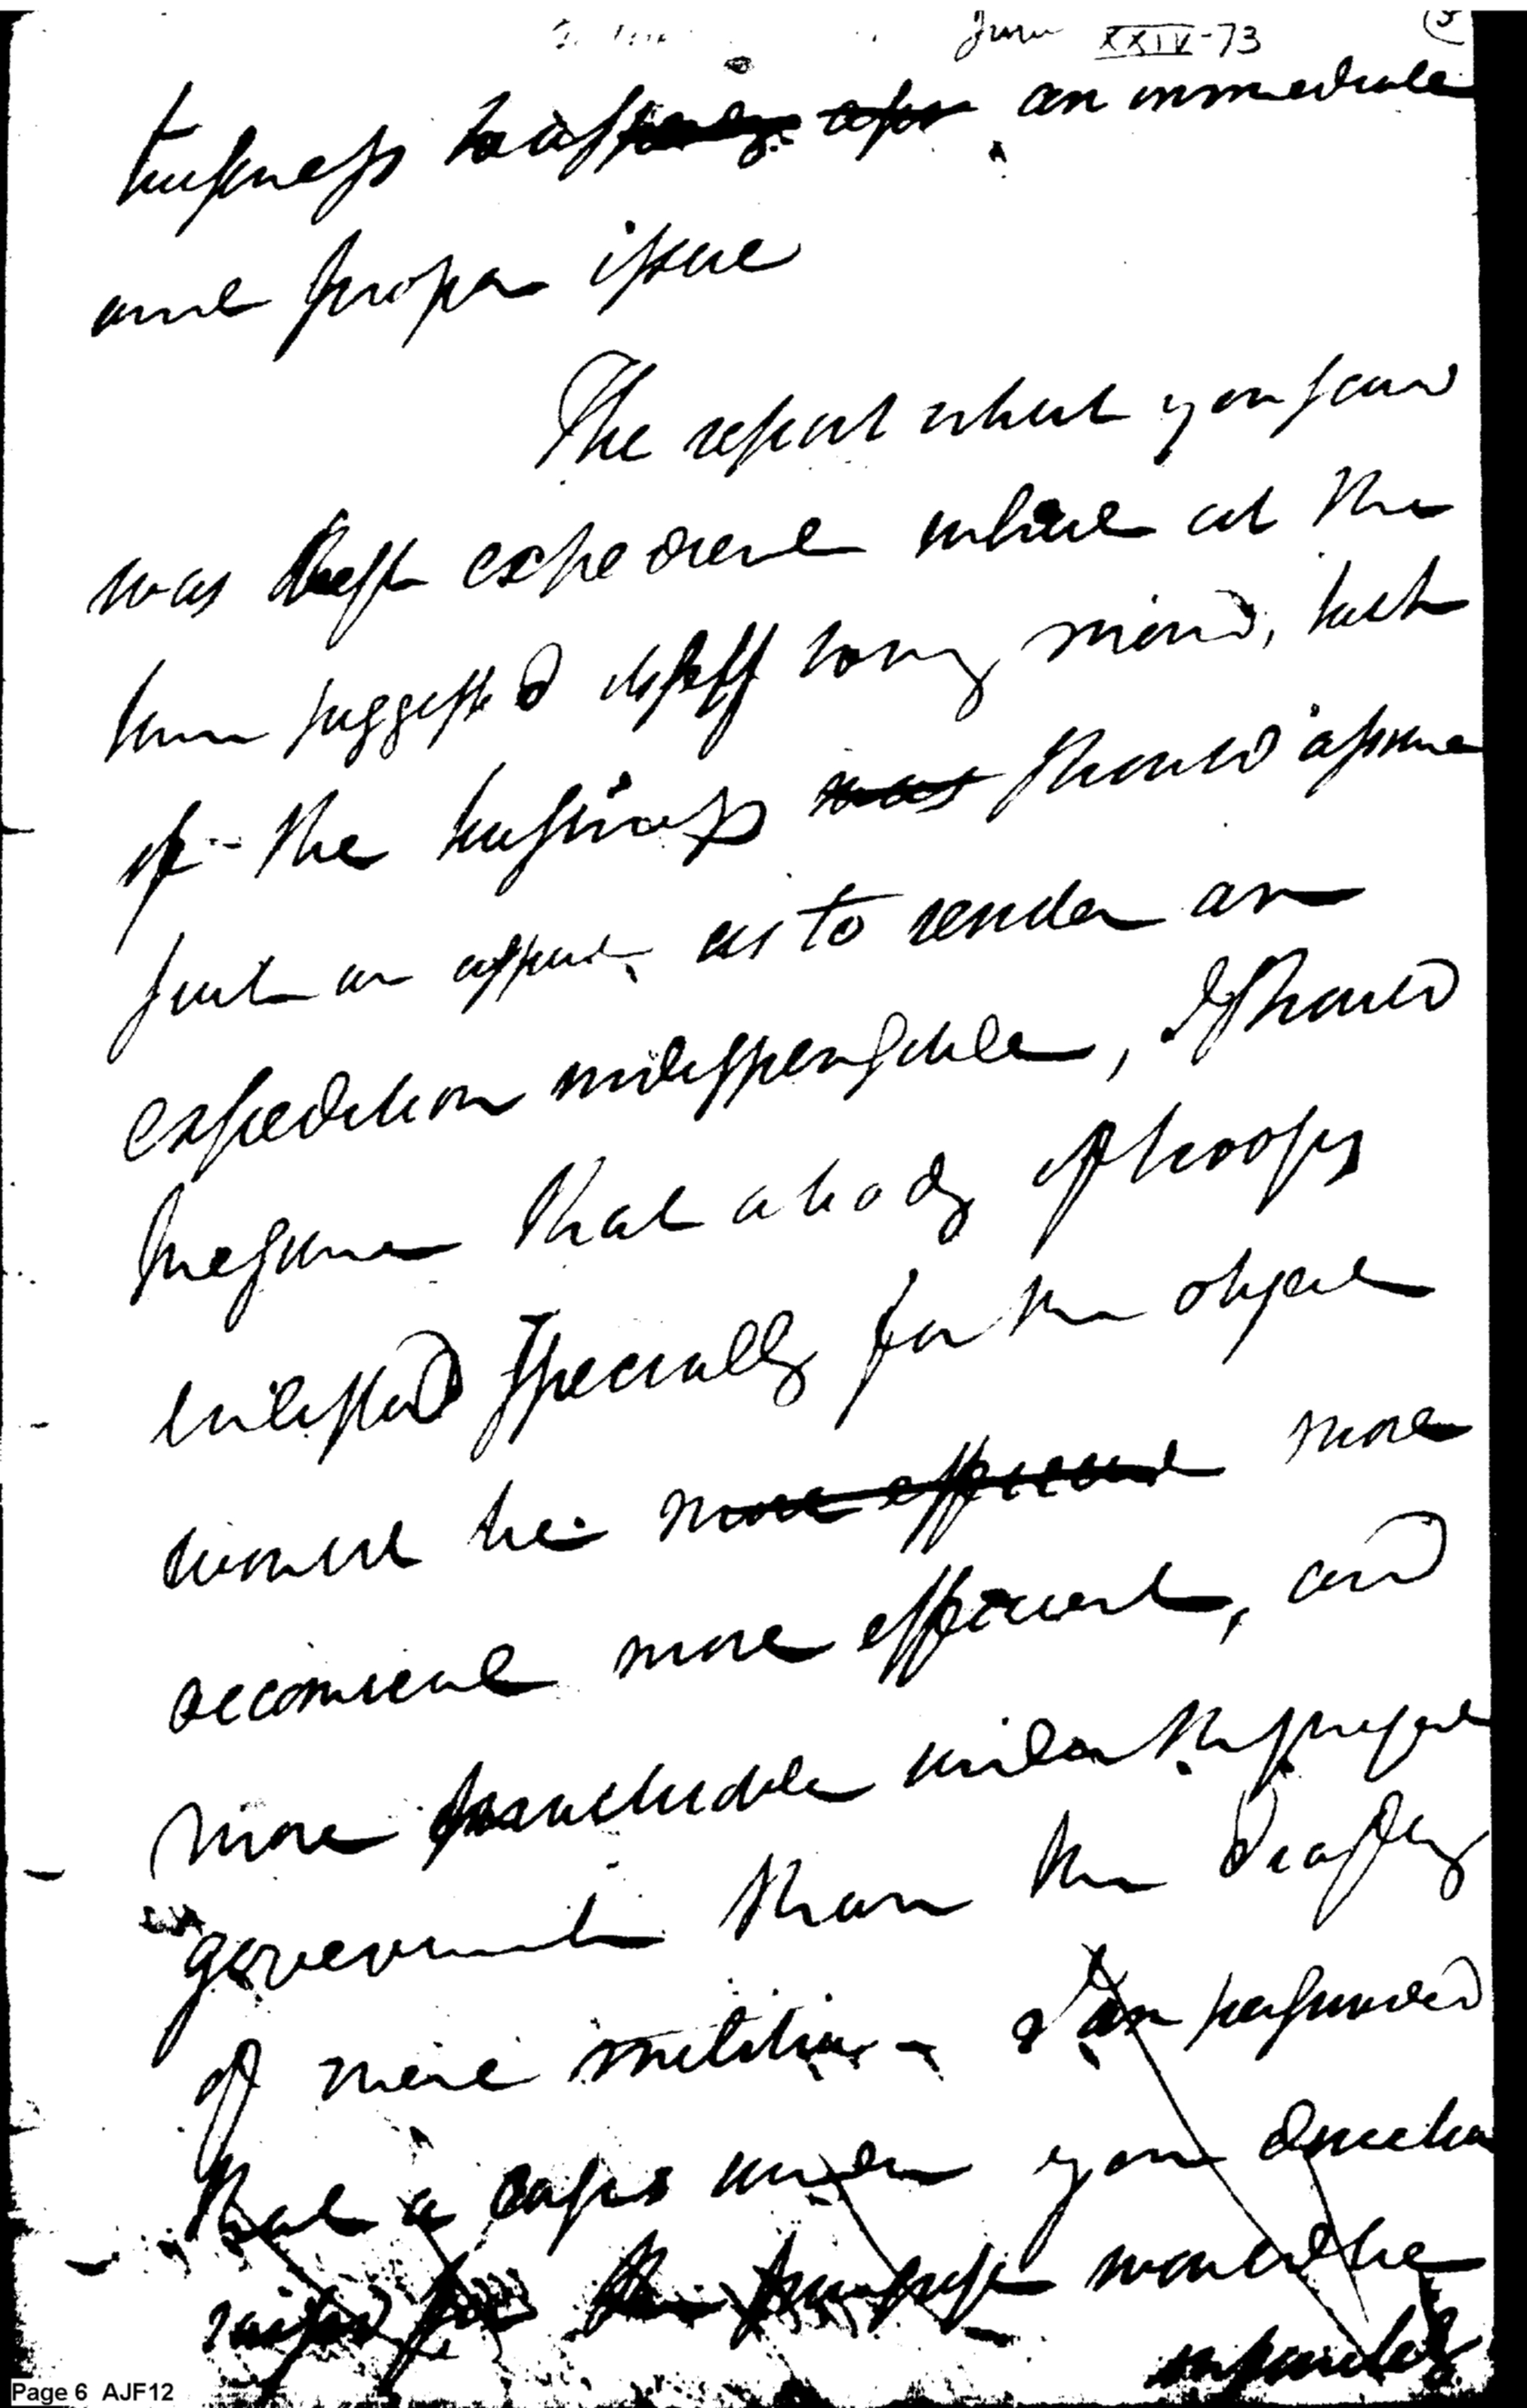 June XXIV-73
business to an immediate
and proper issue
The report which you
was expedient which at the
suggested itself to my mind, but
if the business was should assume
such an aspect as to render an
expedition indispensable, I should
presume that a body of troops
enlisted specially for the object
would be more efficient more
economical more efficient, and
more practicable under the present
government than the drafting
of mere militia - I am persuaded
that a corps under your direction
raised for the purpose would be
Page 6 AJF12